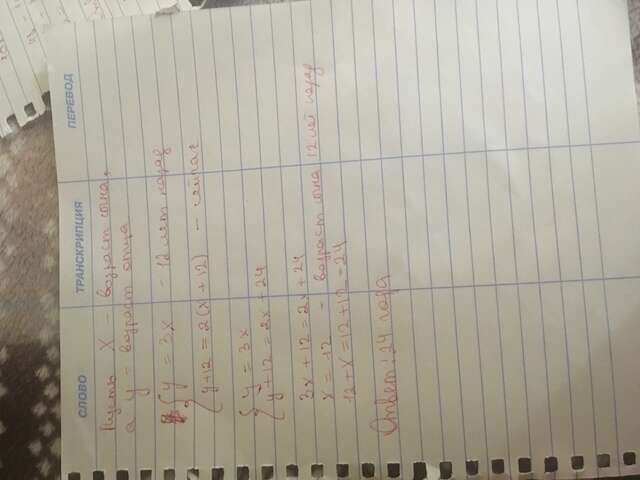 СЛОВО ТРАНСКРИПЦИЯ ПЕРЕВОД
Пусть x - возраст сына,
а y - возраст отца
{ y = 3x - 12 лет назад
{ y+12 = 2(x+12) - сейчас
{ y = 3x
{ y+12 = 2x+24
3x+12 = 2x+24
x = 12 - возраст сына 12 лет назад
12+x = 12+12 = 24
Ответ: 24 года